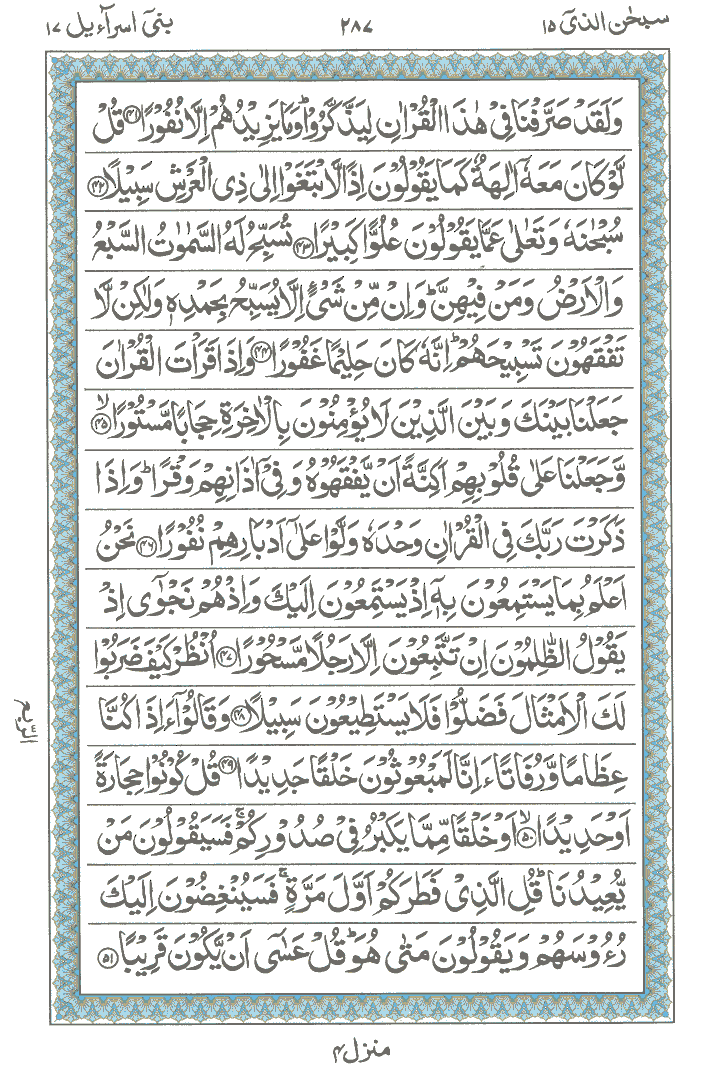 سبحٰن الذیٓ ۱۵ ۲۸۷ بنیٓ اسرآءیل ۱۷
وَلَقَدْ صَرَّفْنَا فِیْ هٰذَا الْقُرْاٰنِ لِیَذَّكَّرُوْاؕ وَمَا یَزِیْدُهُمْ اِلَّا نُفُوْرًا ۝۴۱ قُلْ
لَّوْ كَانَ مَعَهٗۤ اٰلِهَةٌ كَمَا یَقُوْلُوْنَ اِذًا لَّابْتَغَوْا اِلٰی ذِی الْعَرْشِ سَبِیْلًا ۝۴۲
سُبْحٰنَهٗ وَتَعٰلٰی عَمَّا یَقُوْلُوْنَ عُلُوًّا كَبِیْرًا ۝۴۳ تُسَبِّحُ لَهُ السَّمٰوٰتُ السَّبْعُ
وَالْاَرْضُ وَمَنْ فِیْهِنَّؕ وَاِنْ مِّنْ شَیْءٍ اِلَّا یُسَبِّحُ بِحَمْدِهٖ وَلٰكِنْ لَّا
تَفْقَهُوْنَ تَسْبِیْحَهُمْؕ اِنَّهٗ كَانَ حَلِیْمًا غَفُوْرًا ۝۴۴ وَاِذَا قَرَاْتَ الْقُرْاٰنَ
جَعَلْنَا بَیْنَكَ وَبَیْنَ الَّذِیْنَ لَا یُؤْمِنُوْنَ بِالْاٰخِرَةِ حِجَابًا مَّسْتُوْرًا ۝۴۵ۙ
وَّجَعَلْنَا عَلٰی قُلُوْبِهِمْ اَكِنَّةً اَنْ یَّفْقَهُوْهُ وَفِیْۤ اٰذَانِهِمْ وَقْرًاؕ وَاِذَا
ذَكَرْتَ رَبَّكَ فِی الْقُرْاٰنِ وَحْدَهٗ وَلَّوْا عَلٰۤی اَدْبَارِهِمْ نُفُوْرًا ۝۴۶ نَحْنُ
اَعْلَمُ بِمَا یَسْتَمِعُوْنَ بِهٖۤ اِذْ یَسْتَمِعُوْنَ اِلَیْكَ وَاِذْ هُمْ نَجْوٰۤی اِذْ
یَقُوْلُ الظّٰلِمُوْنَ اِنْ تَتَّبِعُوْنَ اِلَّا رَجُلًا مَّسْحُوْرًا ۝۴۷ اُنْظُرْ كَیْفَ ضَرَبُوْا
لَكَ الْاَمْثَالَ فَضَلُّوْا فَلَا یَسْتَطِیْعُوْنَ سَبِیْلًا ۝۴۸ وَقَالُوْۤا ءَاِذَا كُنَّا
عِظَامًا وَّرُفَاتًا ءَاِنَّا لَمَبْعُوْثُوْنَ خَلْقًا جَدِیْدًا ۝۴۹ قُلْ كُوْنُوْا حِجَارَةً
اَوْ حَدِیْدًا ۝۵۰ۙ اَوْ خَلْقًا مِّمَّا یَكْبُرُ فِیْ صُدُوْرِكُمْۚ فَسَیَقُوْلُوْنَ مَنْ
یُّعِیْدُنَاؕ قُلِ الَّذِیْ فَطَرَكُمْ اَوَّلَ مَرَّةٍۚ فَسَیُنْغِضُوْنَ اِلَیْكَ
رُءُوْسَهُمْ وَیَقُوْلُوْنَ مَتٰی هُوَؕ قُلْ عَسٰۤی اَنْ یَّكُوْنَ قَرِیْبًا ۝۵۱
الرّبع
منزل ۴